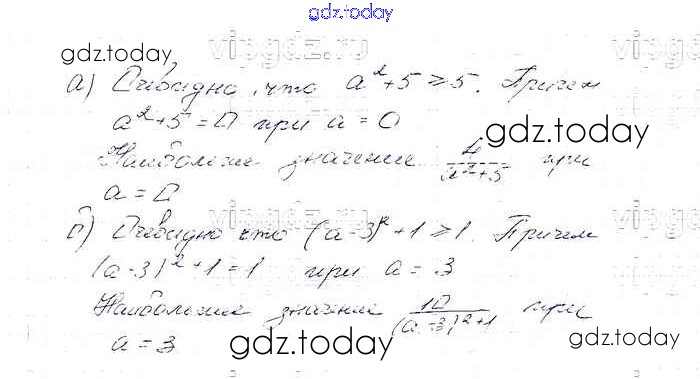 gdz.today
gdz.today
vipgdz.ru
а) Очевидно, что a²+5 ≥ 5. Причем
a²+5 = 0 при a = 0
gdz.today
Наибольшее значение 4/(a²+5) при
a = 0
б) Очевидно что (a-3)²+1 ≥ 1. Причем
(a-3)²+1 = 1 при a = 3
Наибольшее значение 10/((a-3)²+1) при
a = 3
gdz.today
gdz.today